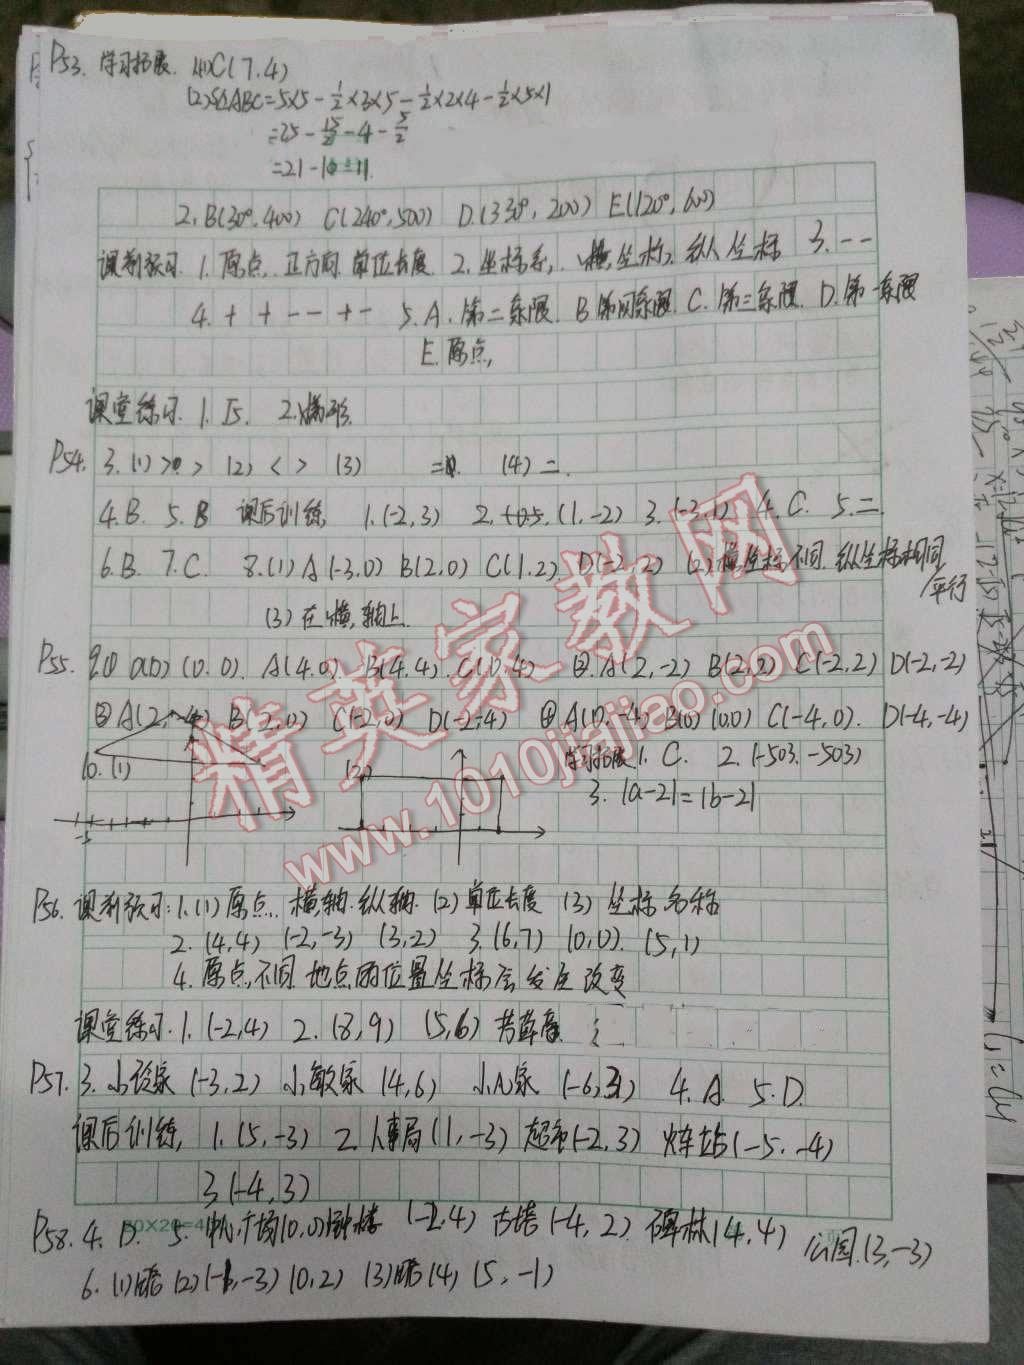 P53. 学习拓展. (1)C(7.4)
(2)S△ABC=5×5-½×3×5-½×2×4-½×5×1
=25-15/2-4-5/2
=21-10=11.
2. B(30°,400) C(240°,500) D.(330°,200) E(120°,600)
课前预习. 1. 原点. 正方向. 单位长度. 2. 坐标系. 横坐标. 纵坐标 3. - -
4. + + - - + - 5. A. 第二象限. B 第四象限. C. 第三象限. D. 第一象限
E. 原点.
课堂练习. 1. 5. 2.
P54. 3. (1) > > (2) < > (3) = (4) =.
4. B. 5. B 课后训练. 1. (-2,3) 2. (1,-2) 3. (-3,1) 4. C. 5. 二.
6. B. 7. C. 8. (1) A(-3,0) B(2,0) C(1,2) D(-2,2) (2)横坐标不同. 纵坐标相同 平行
(3) 在横轴上.
P55. 9. ① (0,0) A(4,0) B(4,4) C(0,4) ② A(2,-2) B(2,2) C(-2,2) D(-2,-2)
③ A(2,-4) B(2,0) C(-2,0) D(-2,-4) ④ A(0,-4) B(0,0) C(-4,0). D(-4,-4)
10. (1) (2) 学习拓展 1. C. 2. (-503,-503)
3. |a-2|=|b-2|
-5
P56. 课前预习: 1. (1) 原点. 横轴. 纵轴. (2) 单位长度 (3) 坐标 名称
2. (4,4) (-2,-3) (3,-2) 3. (6,7) (0,0). (5,1)
4. 原点不同. 地点的位置坐标会发生改变
课堂练习. 1. (-2,4) 2. (8,9) (5,6)
P57. 3. 小 家(-3,2) 小敏家(4,6) 小 家(-6,3) 4. A. 5. D.
课后训练. 1. (5,-3) 2. 人事局(1,-3) 超市(-2,3) 火车站(-5,-4)
3 (-4,3)
20×20=4
P58. 4. D. 5. 中心广场(0,0)钟楼(-2,4) 古塔(-4,2) 碑林(4,4) 公园(3,-3)
6. (1)略 (2)(-1,-3) (0,2) (3)略 (4) (5,-1)
精英家教网
www.1010jiajiao.com